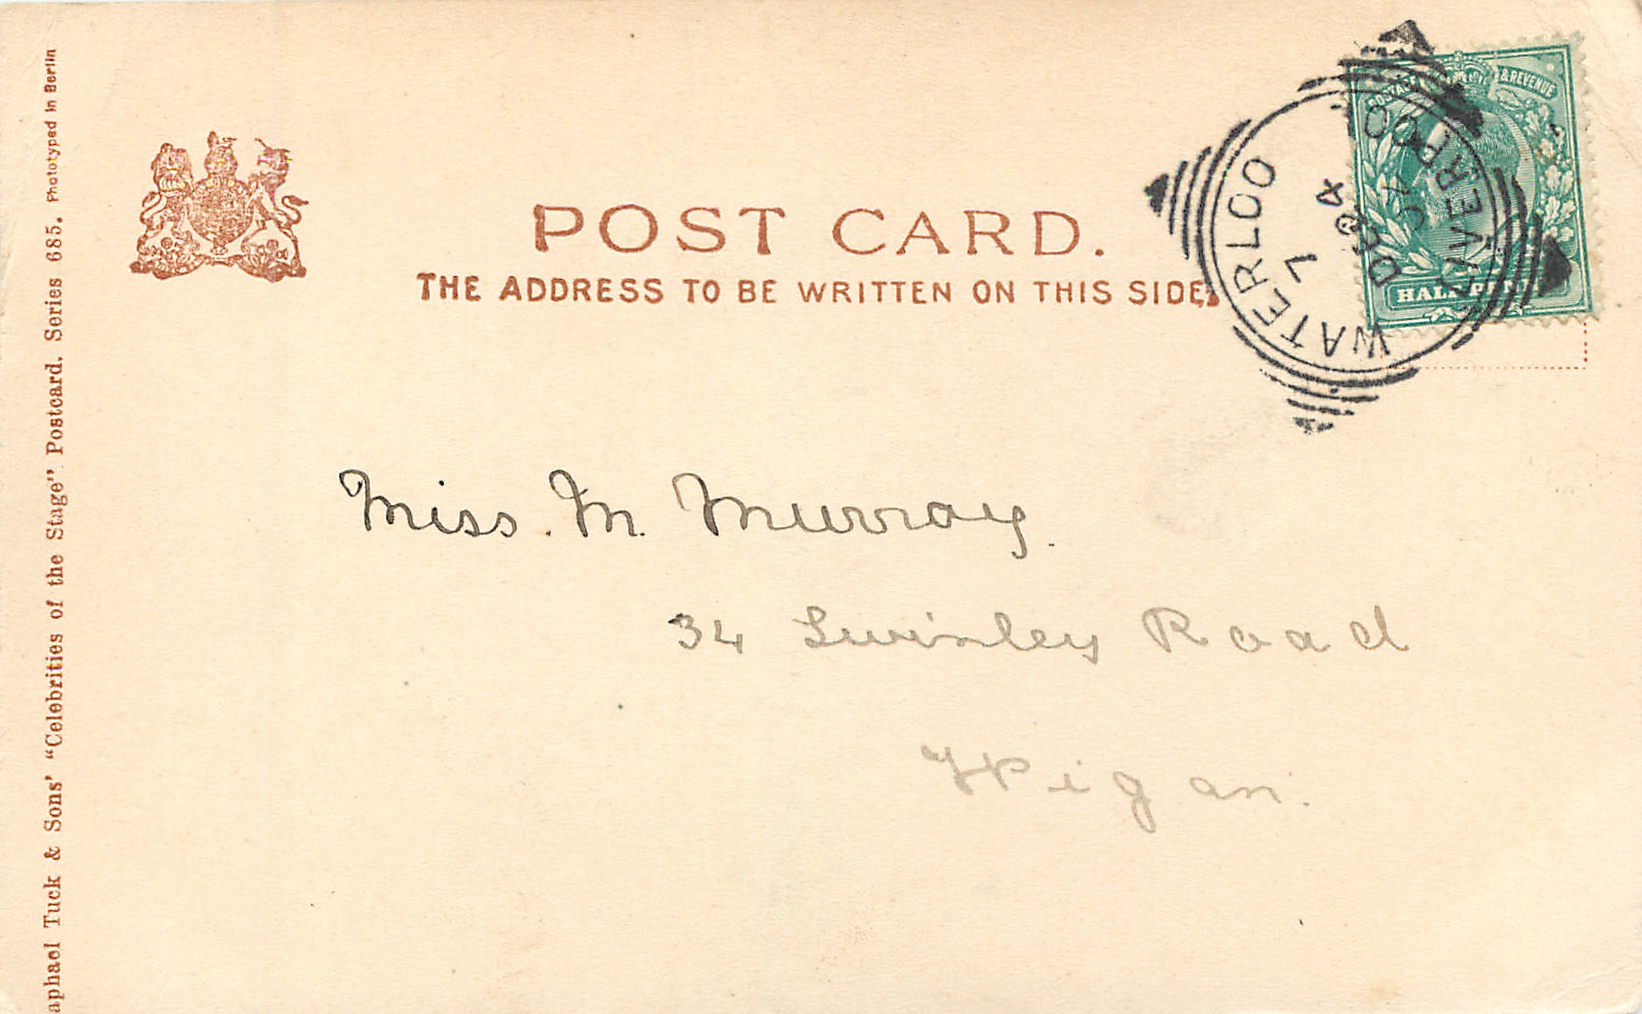 POST CARD.
THE ADDRESS TO BE WRITTEN ON THIS SIDE.
POSTAGE & REVENUE
HALF PENNY
WATERLOO LIVERPOOL
7
DE
04
Miss. M. Murray.
34 Swinley Road
Wigan.
aphael Tuck & Sons' "Celebrities of the Stage" Postcard. Series 685. Phototyped in Berlin